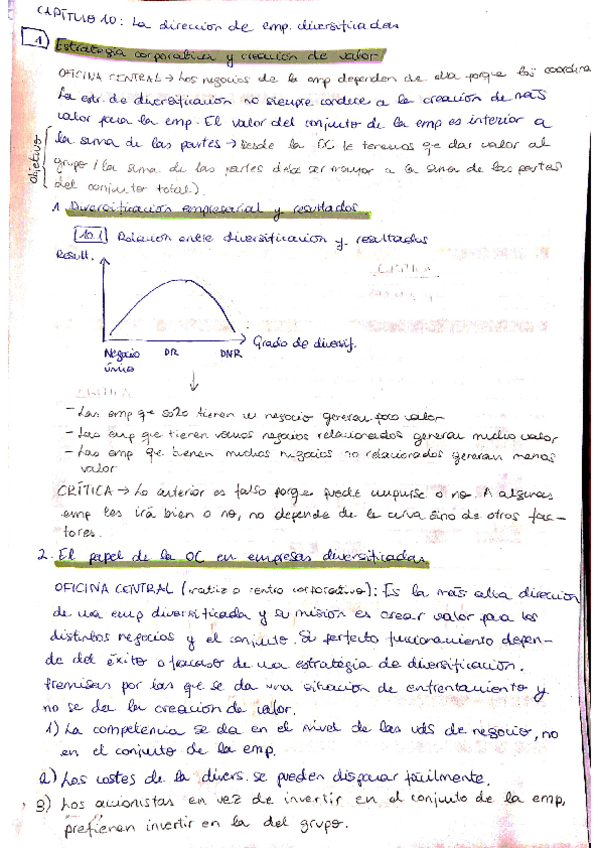 CAPÍTULO 10: La dirección de emp. diversificadas
1) Estrategia corporativa y creación de valor
OFICINA CENTRAL → Los negocios de la emp dependen de ella porque los coordina
La estr. de diversificación no siempre conduce a la creación de más
valor para la emp. El valor del conjunto de la emp es inferior a
la suma de las partes → Desde la OC le tenemos qe dar valor al
grupo (la suma de las partes debe ser mayor a la suma de las partes
del conjunto total).
objetivo
1. Diversificación empresarial y resultados
10.1 Relación entre diversificación y resultados
Result.
Grado de diversif.
Negocio único
DR
DNR
CRÍTICA
- Las emp qe solo tienen un negocio generan poco valor
- Las emp que tienen varios negocios relacionados generan mucho valor
- Las emp que tienen muchos negocios no relacionados generan menos
valor
CRÍTICA → Lo anterior es falso porqe puede cumplirse o no. A algunas
emp les irá bien o no, no depende de la curva sino de otros fac-
tores.
2. El papel de la OC en empresas diversificadas
OFICINA CENTRAL (matriz o centro corporativo): Es la más alta dirección
de una emp diversificada y su misión es crear valor para los
distintos negocios y el conjunto. Su perfecto funcionamiento depen-
de del éxito o fracaso de una estrategia de diversificación.
Premisas por las que se da una situación de enfrentamiento y
no se da la creación de valor.
1) La competencia se da en el nivel de las uds de negocio, no
en el conjunto de la emp.
2) Los costes de la divers. se pueden disparar fácilmente.
3) Los accionistas en vez de invertir en el conjunto de la emp,
prefieren invertir en la del grupo.